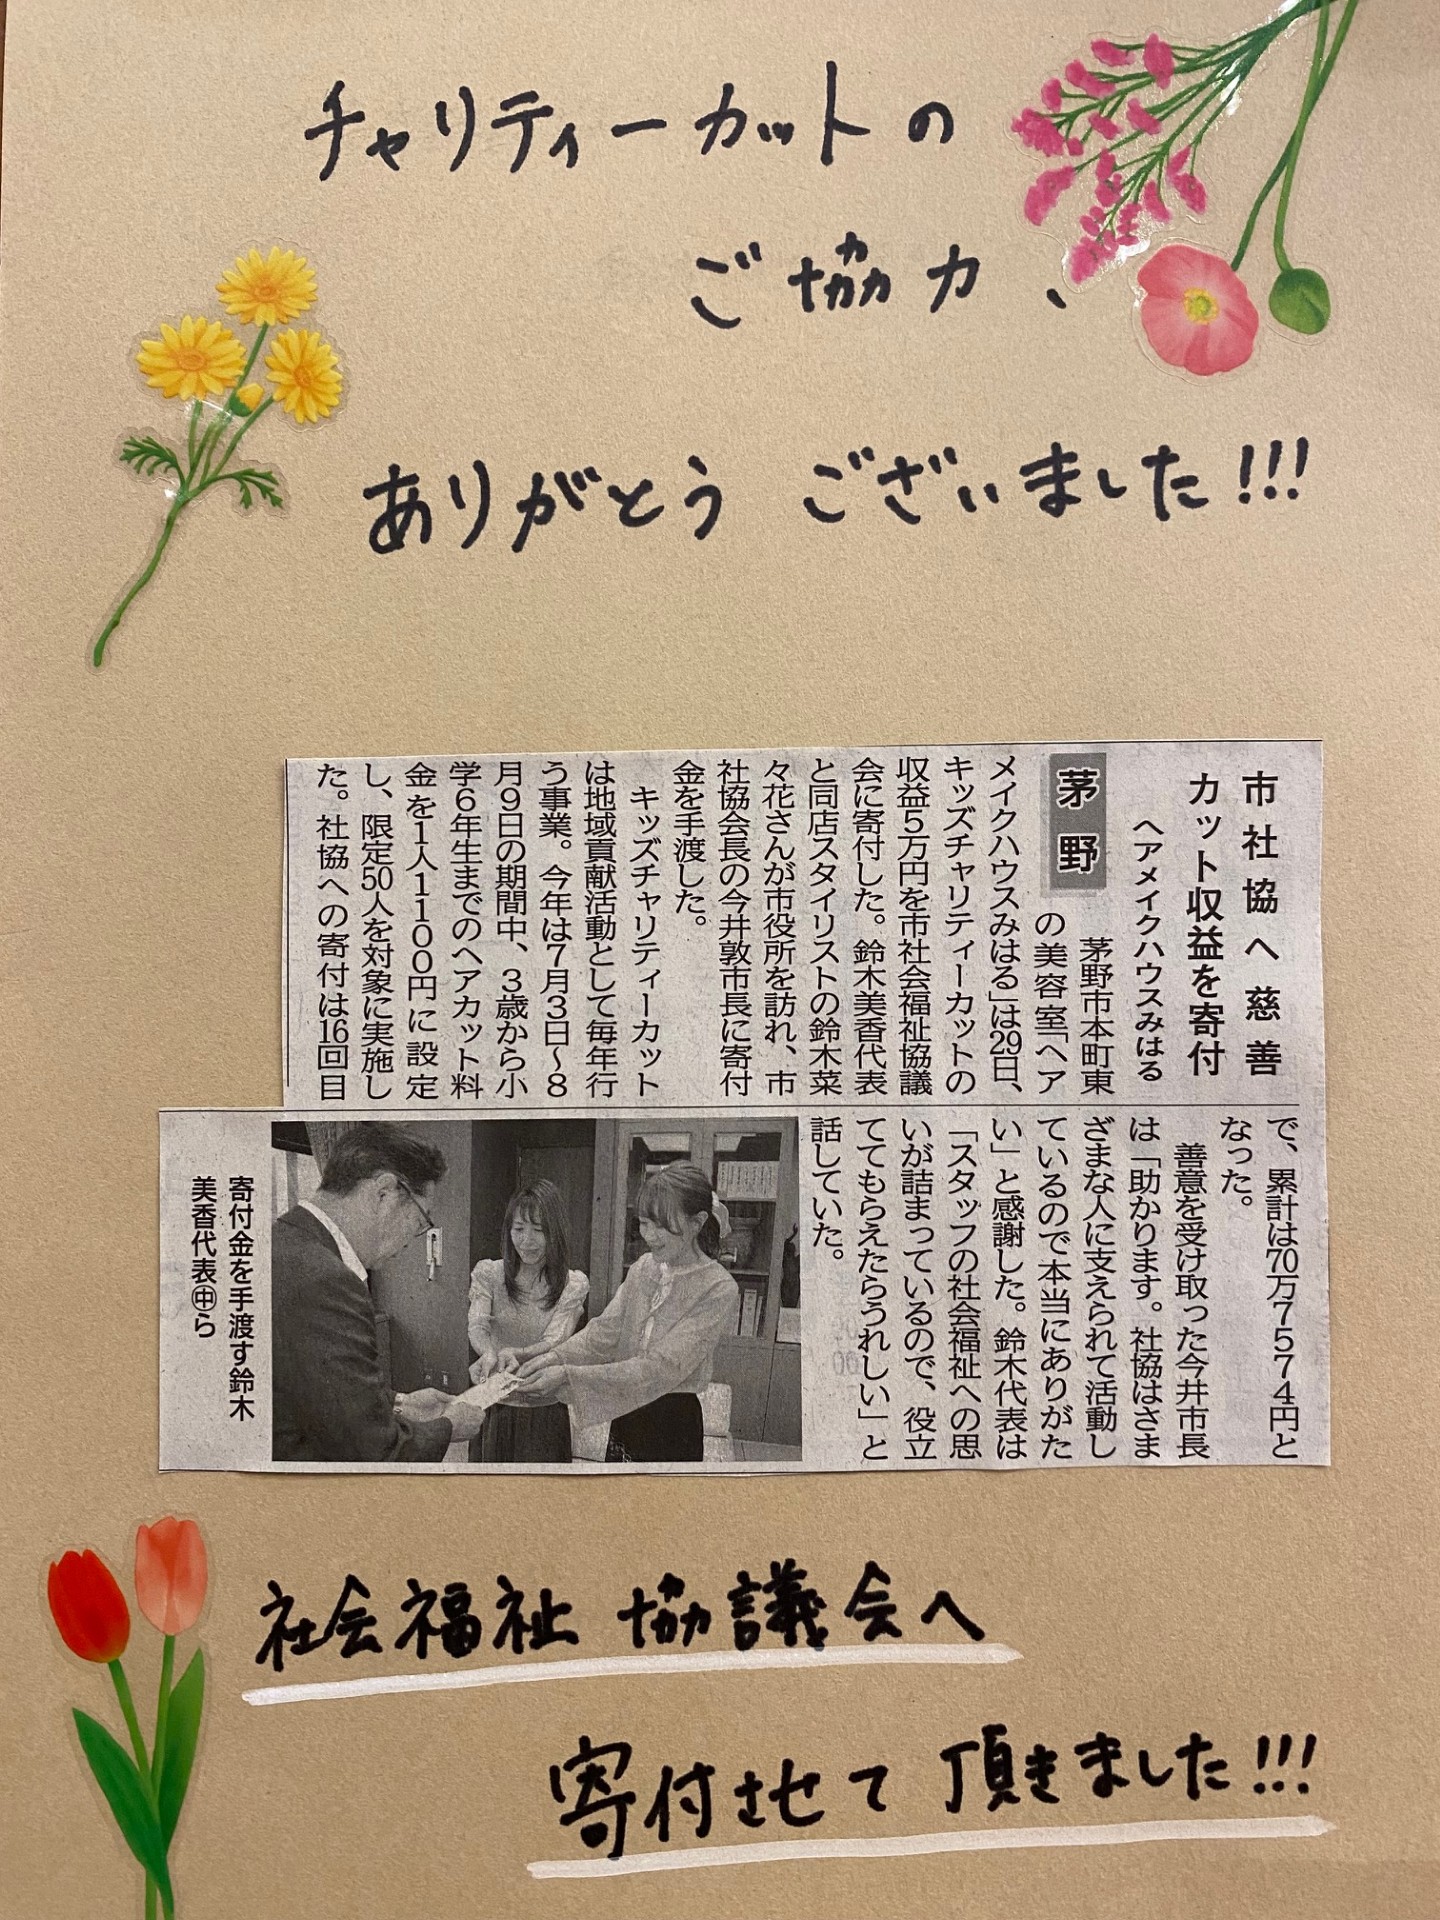 チャリティーカットの
ご協力、
ありがとうございました!!!
市社協へ慈善
カット収益を寄付
ヘアメイクハウスみはる
茅野
茅野市本町東
の美容室「ヘア
メイクハウスみはる」は29日、
キッズチャリティーカットの
収益5万円を市社会福祉協議
会に寄付した。鈴木美香代表
と同店スタイリストの鈴木菜
々花さんが市役所を訪れ、市
社協会長の今井敦市長に寄付
金を手渡した。
キッズチャリティーカット
は地域貢献活動として毎年行
う事業。今年は7月3日〜8
月9日の期間中、3歳から小
学6年生までのヘアカット料
金を1人1100円に設定
し、限定50人を対象に実施し
た。社協への寄付は16回目
で、累計は70万7574円と
なった。
善意を受け取った今井市長
は「助かります。社協はさま
ざまな人に支えられて活動し
ているので本当にありがた
い」と感謝した。鈴木代表は
「スタッフの社会福祉への思
いが詰まっているので、役立
ててもらえたらうれしい」と
話していた。
寄付金を手渡す鈴木
美香代表㊥ら
社会福祉協議会へ
寄付させて頂きました!!!